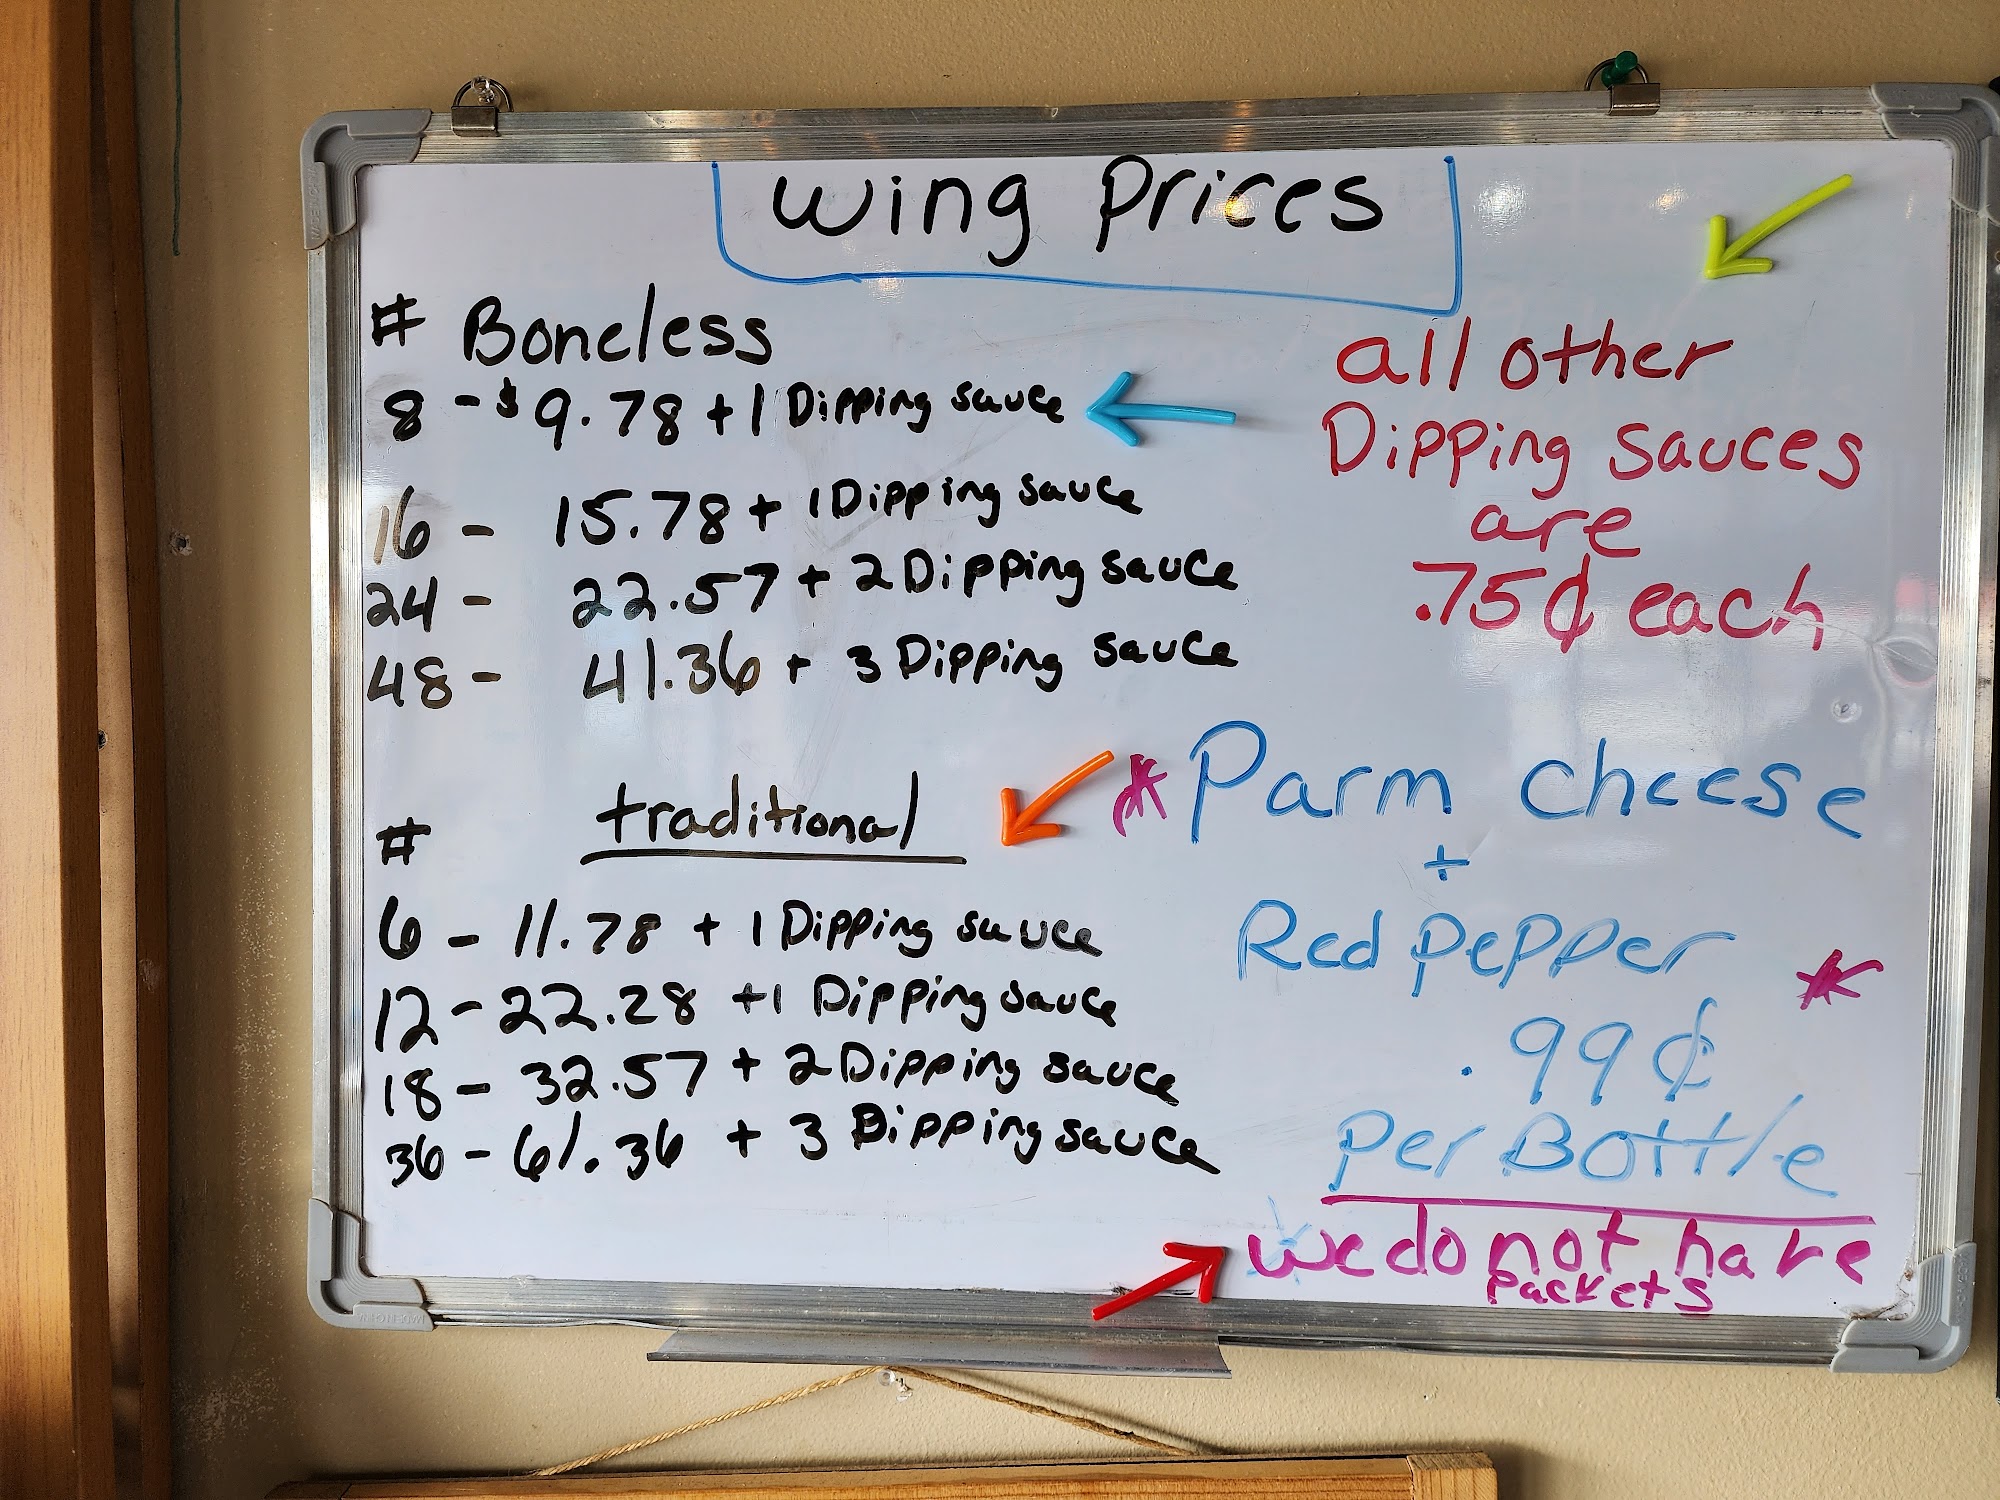 Wing Prices
# Boneless
8 - $9.78 + 1 Dipping sauce
16 - 15.78 + 1 Dipping sauce
24 - 22.57 + 2 Dipping sauce
48 - 41.36 + 3 Dipping sauce
# traditional
6 - 11.78 + 1 Dipping sauce
12 - 22.28 +1 Dipping sauce
18 - 32.57 + 2 Dipping sauce
36 - 61.36 + 3 Dipping sauce
all other
Dipping sauces
are
.75¢ each
* Parm cheese
+
Red pepper *
.99¢
per Bottle
we do not have
packets